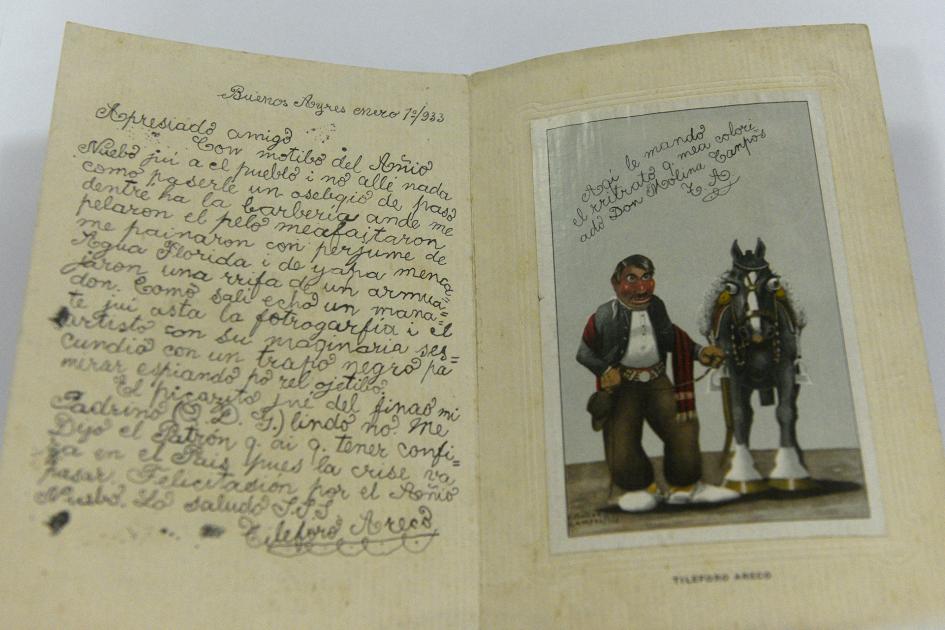 Buenos Ayres enero 1º/933
Apresiado amigo
Con motibo del Añio
Nuebo jui a el pueblo i no allé nada
como paserle un oseligio de paso
dentre ha la barberia ande me
pelaron el pelo meafaitaron
me painaron con perjume de
Agua Florida i de yapa menca=
jaron una rrifa de un armua=
don. Como sali echo un mana=
te jui asta la fotrogarfía i el
artisto con su maginaria ses=
cundio con un trapo negro pa
merar espiando po rel ojetibo.
El picazito jue del finao mi
Padrino (Q. D. G.) lindo no. Me
Dijo el Patron q. ai q. tener confi=
za en el Pais, pues la crise va
pasar. Felicitasion por el Añio
Nuebo. Lo saludo S.S.S.
Tileforo Areco
Aqi le mando
el rritrato q. mea colori
ado Don Molina Campos
T. A.
TILEFORO ARECO